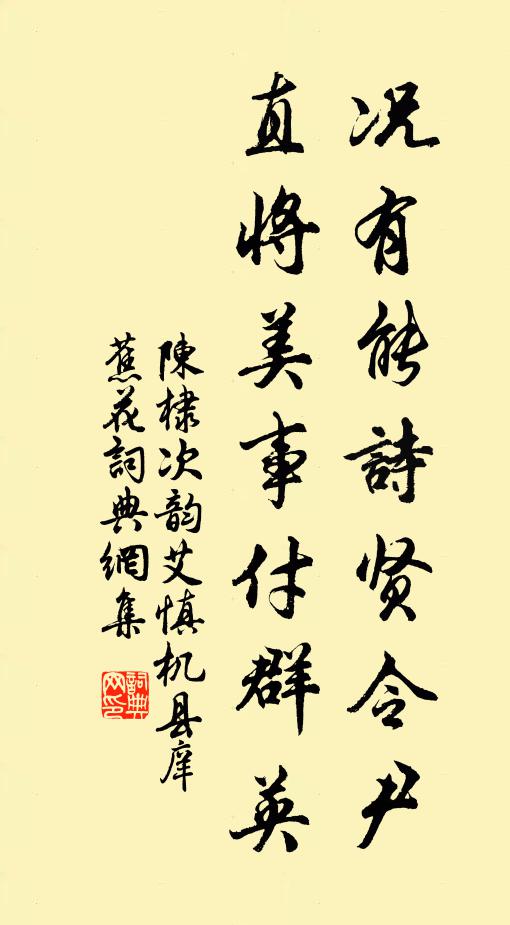 况有能詩贤令尹
直将美事付群英
陳棣次韵艾慎机县庠
蕉花詞典網集
詞典网印